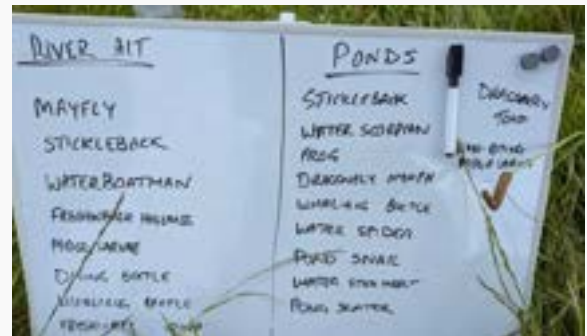 RIVER AIT
MAYFLY
STICKLEBACK
WATER BOATMAN
FRESHWATER
LARVAE
DIVING BEETLE
WHIRLING BEETLE
PONDS
STICKLEBACK
WATER SCORPIAN
FROG
DRAGONFLY NYMPH
WHIRLING BEETLE
WATER SPIDER
POND SNAIL
WATER
POND SKATER
DRAGONFLY
TOAD